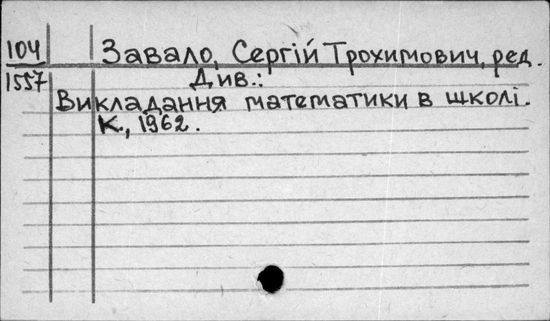 104 Завало, Сергій Трохимович, ред.
1557 Див.:
Викладання математики в школі.
К., 1962.